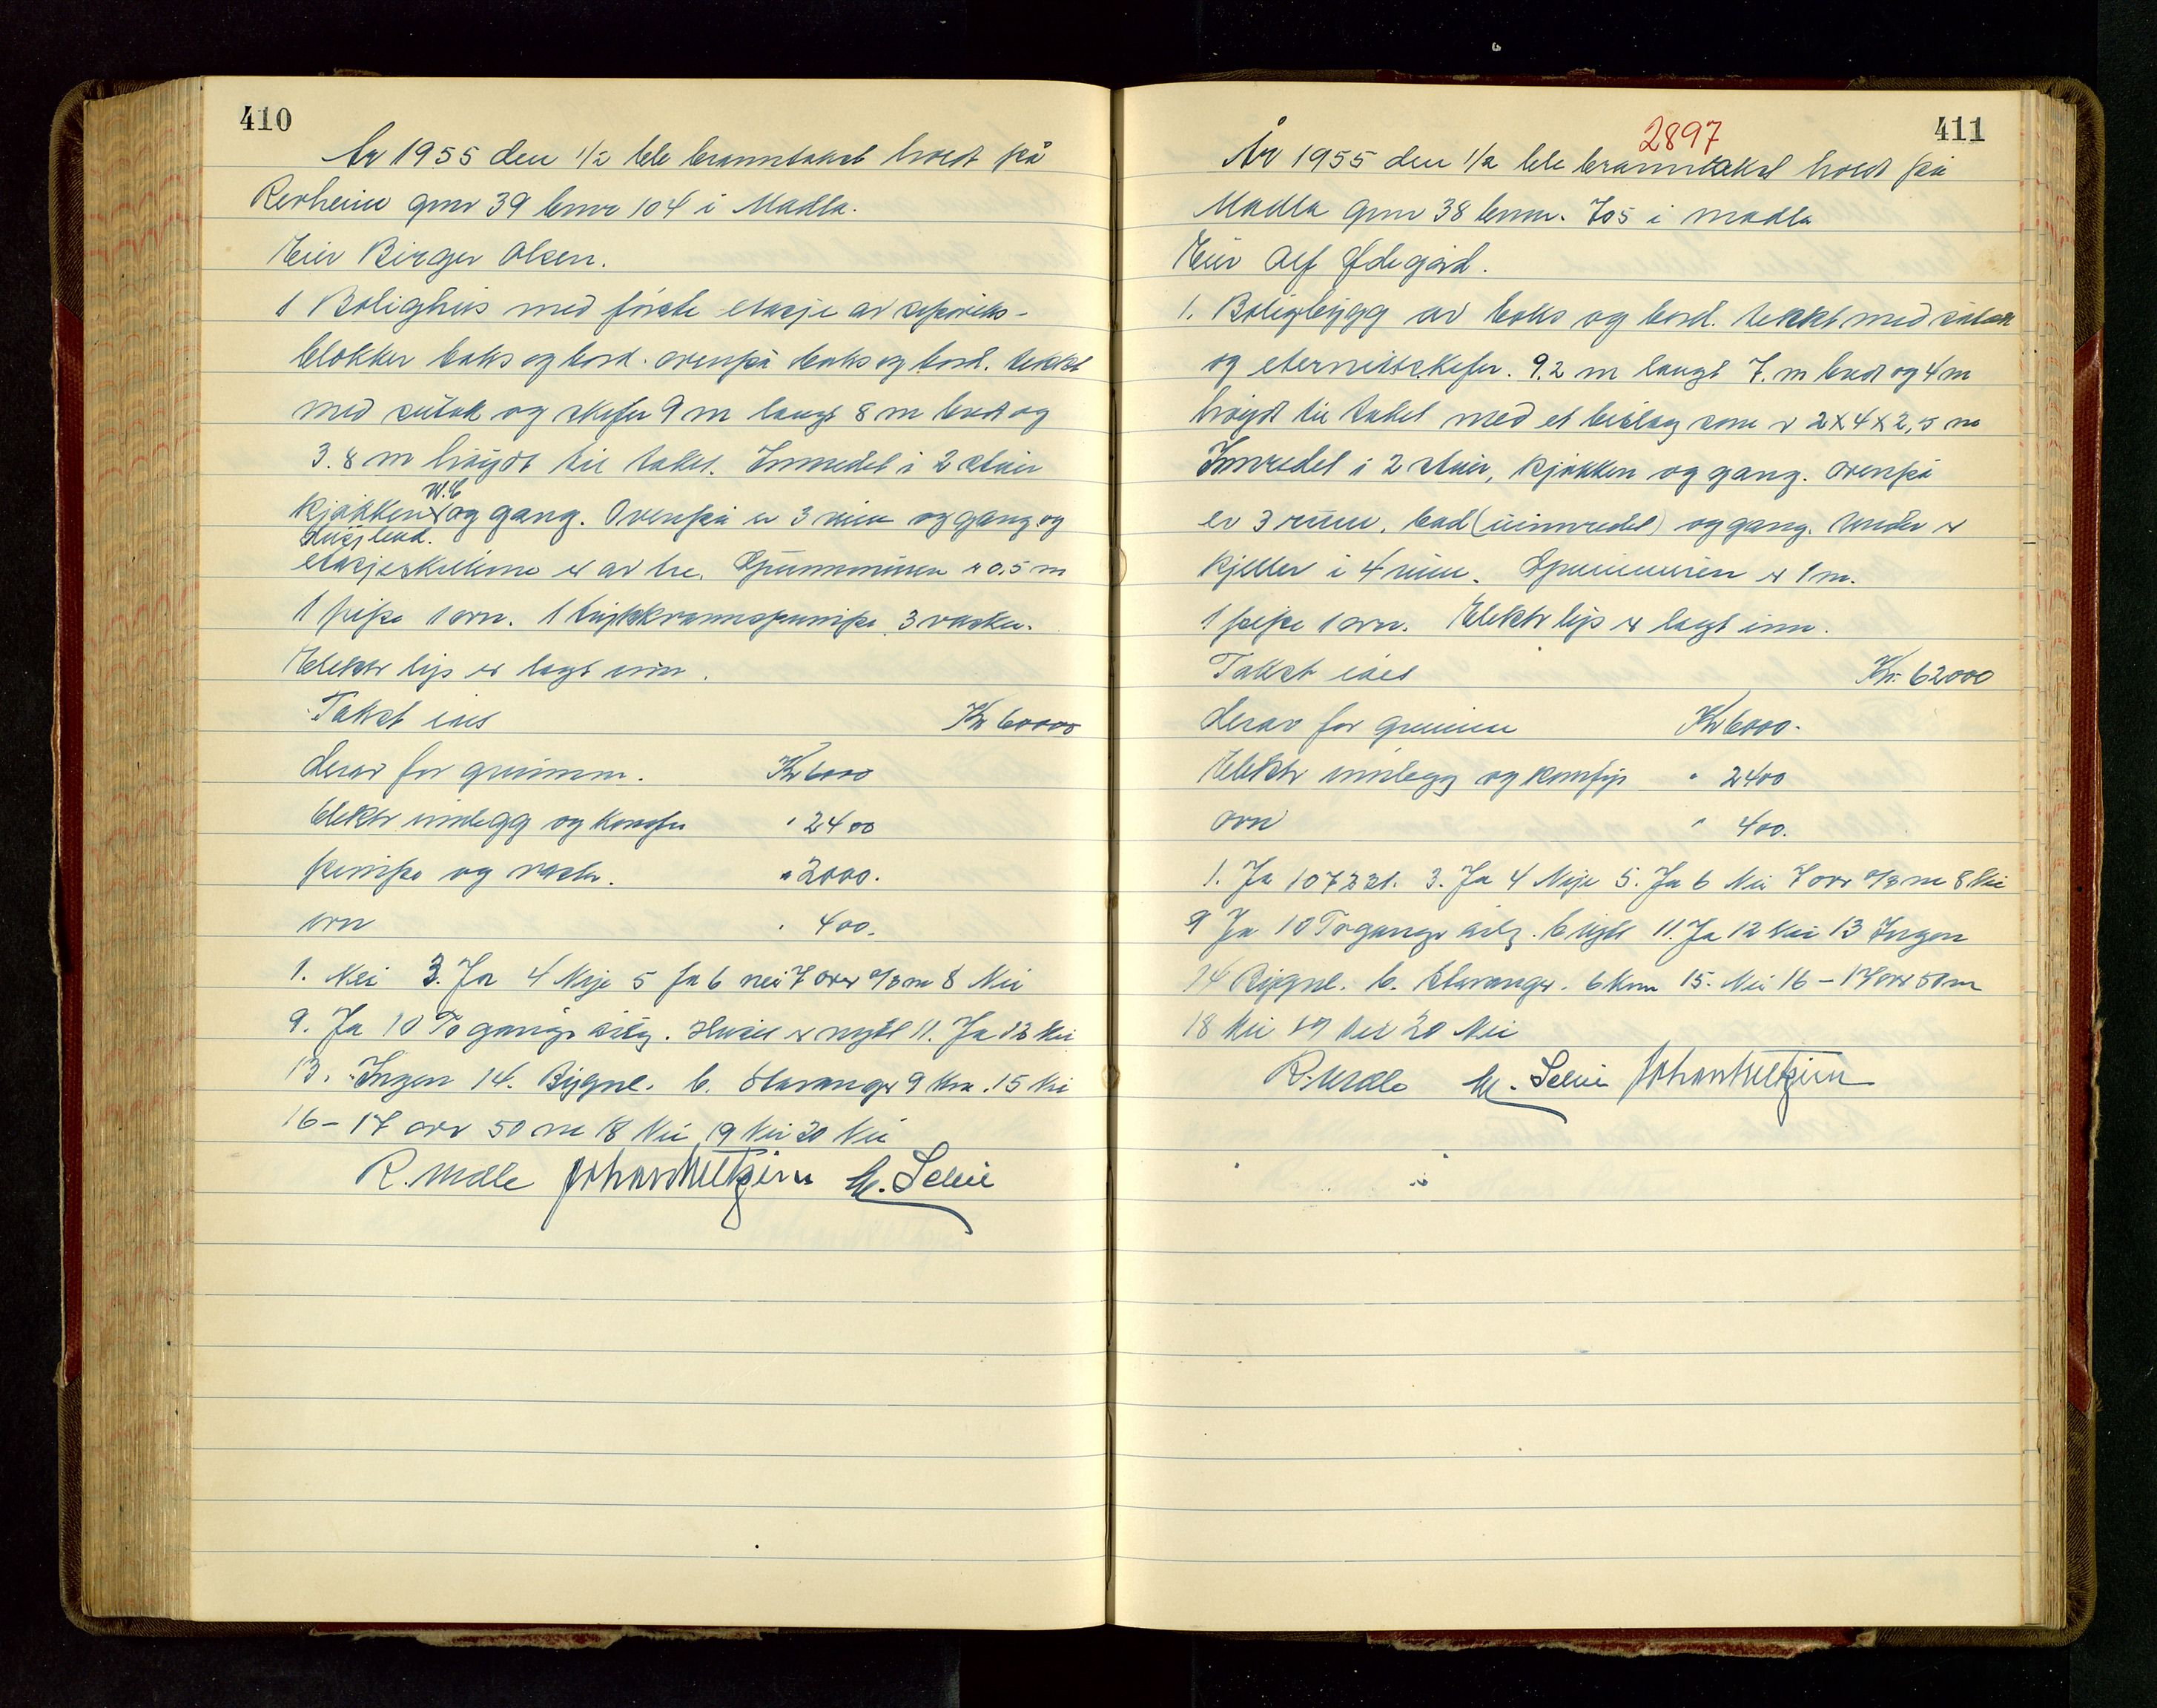 410
År 1955 den 1/2 ble branntakst holdt på
Revheim gnr 39 bnr 104 i Madla.
Eier Birger Olsen.
1 Bolighus med første etasje av siporeks-
blokker boks og bord. ovenpå boks og bord. tekket
med sutak og skifer 9 m langt 8 m bredt og
3.8 m høydt til taket. Innredet i 2 stuer
W.C
kjøkken og gang. Ovenpå er 3 rum og gang og
dusjbad.
etasjeskillene er av tre. Grunnmuren er 0,5 m
1 pipe 1 ovn. 1 trykkrannspumpe 3 vasker.
Elektr lys er lagt inn.
Takst ides Kr 60000
derav for grunnm. Kr 6000
Elektr innlegg og komfyr " 2400
pumpe og vasker. " 2000.
ovn " 400.
1. Nei 3. Ja 4 Nye 5 Ja 6 nei 7 over 8 m 8 Nei
9. Ja 10 To gangr årlig. Huset er nytt 11. Ja 12 Nei
13. Ingen 14. Bygnl. b. Stavanger 9 km. 15 Nei
16 - 17 over 50 m 18 Nei 19 Nei 20 Nei
R. Madle M. Selvi
2897
411
År 1955 den 1/2 ble branntakst holdt på
Madla gnr 38 bnr. 705 i Madla
Eier Alf Ødegård.
1. Boligbygg av boks og bord. tekket med sutak
og eternittskifer. 9.2 m langt 7. m bredt og 4 m
høydt til taket med et bislag som er 2x4x2,5 m
Innredet i 2 stuer, kjøkken og gang. ovenpå
er 3 rum, bad (uinnredet) og gang. Under er
kjeller i 4 rum. Grunnmuren er 1 m.
1 pipe 1 ovn. Elektr lys er lagt inn.
Takst ides Kr. 62000
derav for grunnm Kr 6000.
Elektr innlegg og komfyr " 2400
ovn " 400.
1. Ja 3. Ja 4 Nye 5. Ja 6 Nei 7 over 8 m 8 Nei
9 Ja 10 To gangr årlig. b nytt 11. Ja 12 Nei 13 Ingen
14 Bygnl. b. Stavanger. 6 km 15. Nei 16 - 17 over 50 m
18 Nei 19 Nei 20 Nei
R. Madle M. Selvi